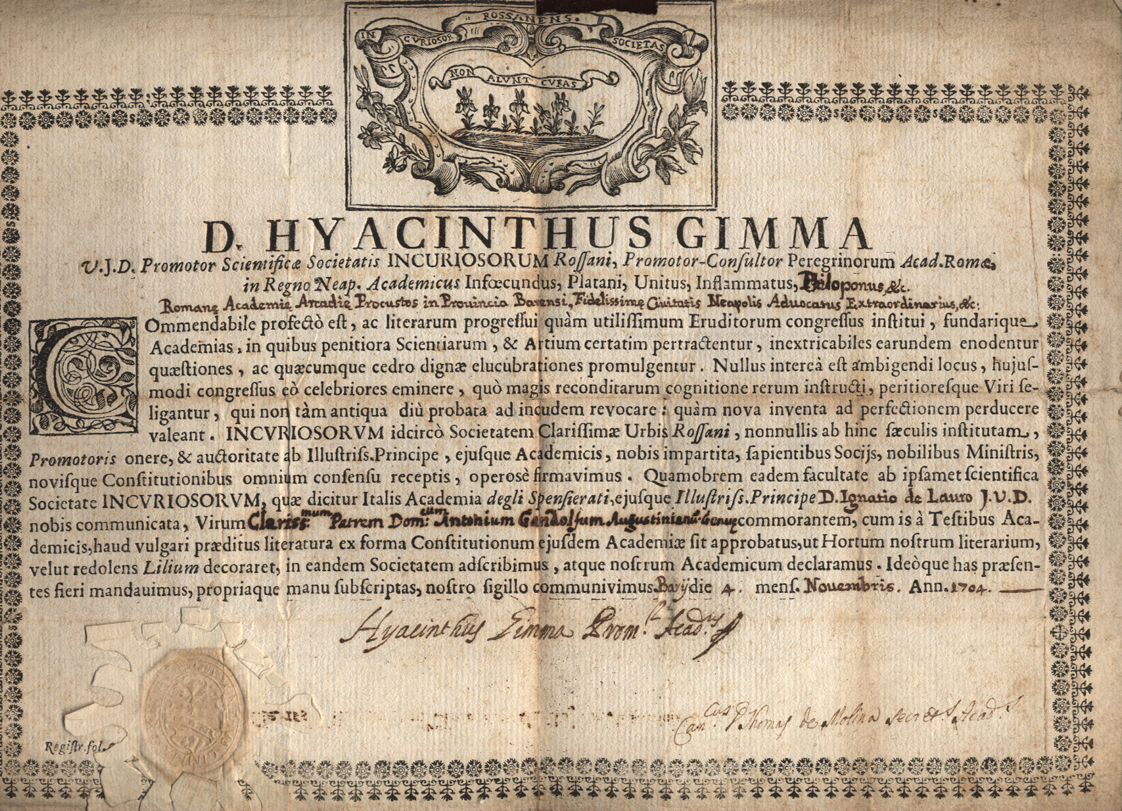 IN CVRIOSOR ROSSANENS. SOCIETAS
NON ALVNT CVRAS
D. HYACINTHUS GIMMA
U.J.D. Promotor Scientificæ Societatis INCURIOSORUM Roſſani, Promotor-Conſultor Peregrinorum Acad. Romæ,
in Regno Neap. Academicus Infœcundus, Platani, Unitus, Inflammatus, Philoponus, &c.
Romanę Academię Arcadię Procustos in Prouincia Barensi, Fidelissimę Ciuitatis Neapolis Aduocatus Extraordinarius, &c:
COmmendabile profectò eſt, ac literarum progreſſui quàm utiliſſimum Eruditorum congreſſus inſtitui, fundarique
Academias, in quibus penitiora Scientiarum, & Artium certatim pertractentur, inextricabiles earundem enodentur
quæſtiones, ac quæcumque cedro dignæ elucubrationes promulgentur. Nullus intereà eſt ambigendi locus, hujuſ-
modi congreſſus eò celebriores eminere, quò magis reconditarum cognitione rerum inſtructi, peritioreſque Viri ſe-
ligantur, qui non tàm antiqua diù probata ad incudem revocare: quàm nova inventa ad perfectionem perducere
valeant. INCVRIOSORVM idcircò Societatem Clariſſimæ Urbis Roſſani, nonnullis ab hinc ſæculis inſtitutam,
Promotoris onere, & auctoritate ab Illuſtriſs. Principe, ejuſque Academicis, nobis impartita, ſapientibus Socijs, nobilibus Miniſtris,
noviſque Conſtitutionibus omnium conſenſu receptis, operosè firmavimus. Quamobrem eadem facultate ab ipſamet ſcientifica
Societate INCVRIOSORVM, quæ dicitur Italis Academia degli Spenſierati, ejuſque Illuſtriſs. Principe D. Ignatio de Lauro J.V.D.
nobis communicata, Virum Clariss:mum Patrem Dom:cum Antonium Gandolfum Augustinianū Genuę commorantem, cum is à Teſtibus Aca-
demicis, haud vulgari præditus literatura ex forma Conſtitutionum ejuſdem Academiæ ſit approbatus, ut Hortum noſtrum literarium,
velut redolens Lilium decoraret, in eandem Societatem adſcribimus, atque noſtrum Academicum declaramus. Ideòque has præſen-
tes fieri mandauimus, propriaque manu ſubſcriptas, noſtro ſigillo communivimus. Barÿ die 4. menſ. Nouembris. Ann. 1704.
Hyacinthus Gimma Prom.r Acad.
Can.cus Thomas de Molina Secret.s Acad.s
Regiſtr. fol.